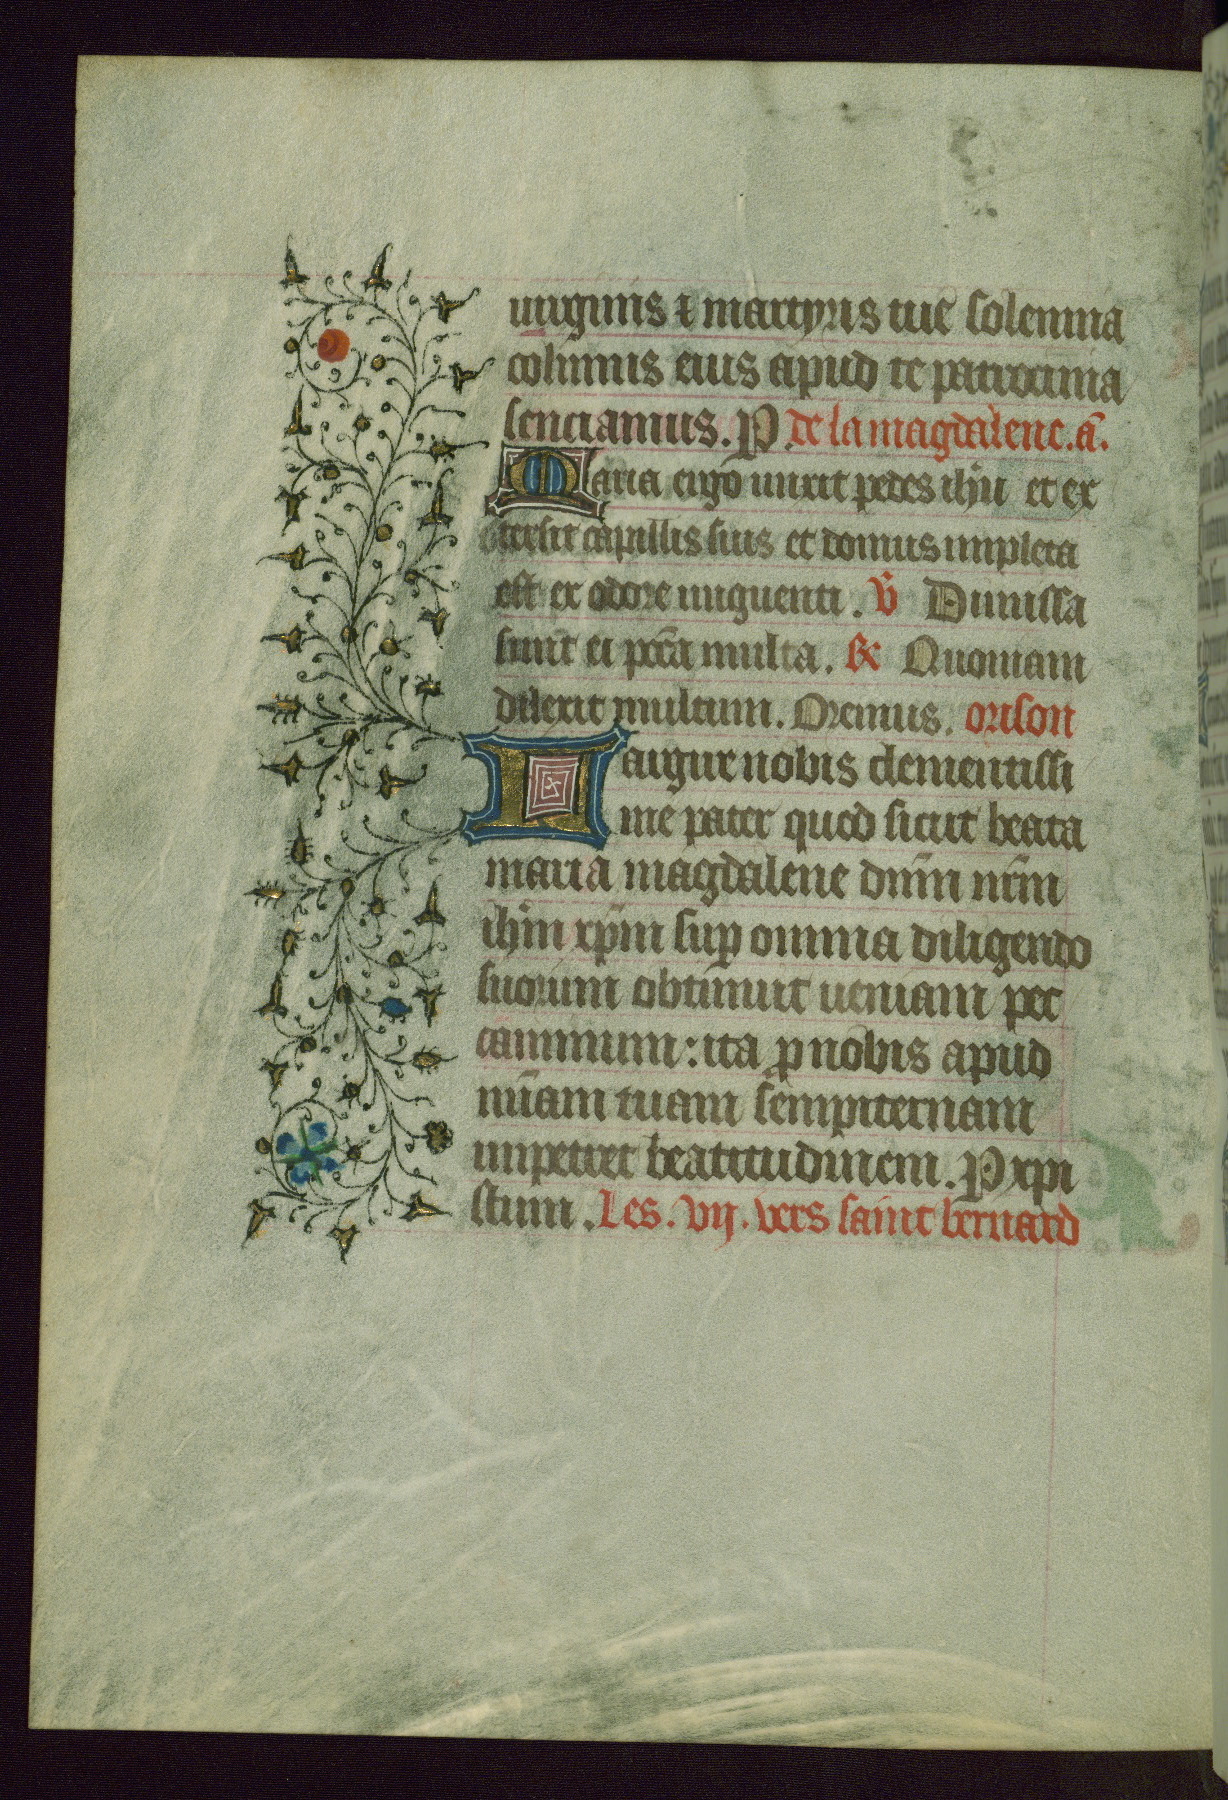 uirginis ⁊ martyris tue solennia
colimus eius apud te patrocinia
senciamus. P de la magdalene. añ.
Maria ergo unxit pedes ihũ et ex
tersit capillis suis et domus impleta
est ex odore unguenti. v̄ Dimissa
sunt ei pccã multa. ℟ Quoniam
dilexit multum. Oremus. orison
Largire nobis clementissi
me pater quod sicut beata
maria magdalene dñm nr̃m
ihm̃ xpm̃ suꝑ omnia diligendo
suorum obtinuit ueniam pec
caminum: ita ꝓ nobis apud
mĩam tuam sempiternam
impetret beatitudinem. P xpi
stum. Les. vij. vers saint bernard